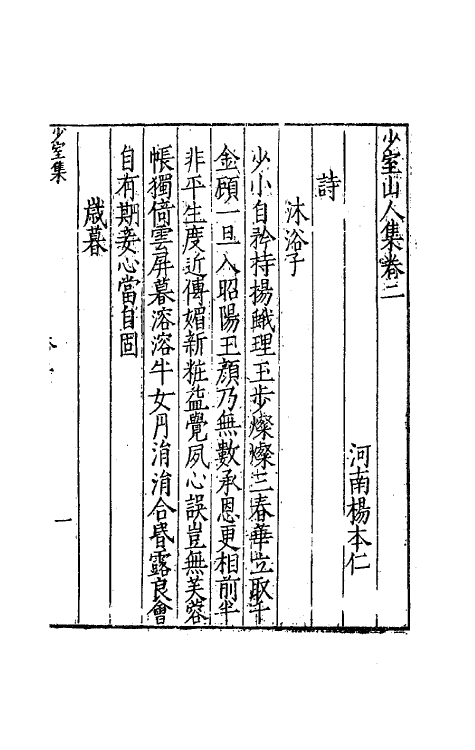 少室山人集卷二
河南楊本仁
詩
沐浴子
少小自矜持揚蛾理玉步燦燦三春華豈取千
金顧一旦入昭陽王顏乃無數承恩更相前半
非平生度近傳媚新粧益覺夙心誤豈無芙蓉
帳獨倚雲屏暮溶溶牛女丹涓涓合昏露良會
自有期妾心當自固
歲暮
少室集
一